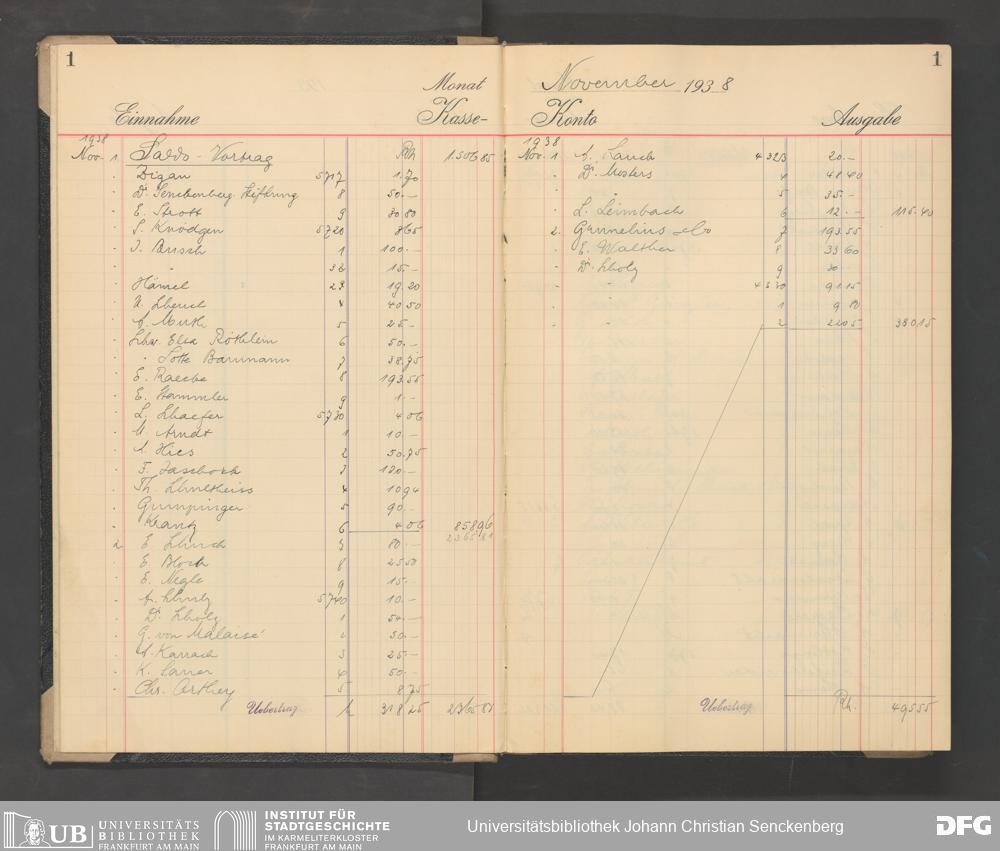 1
Monat
Einnahme Kasse-
1938
Nov. 1 Saldo-Vortrag Rℳ 1506 85
Digan 5717 1.70
Dr. Senckenberg. Stiftung 8 50.-
E. Strott 9 30 80
S. Knödgen 5720 8 65
J. Busch 1 100.-
" 22 15.-
Hämel 23 19 20
4 40 50
A. Muth 5 25.-
Schw. Elsa Röthlein 6 50.-
" Lotte Baumann 7 38.75
E. Raecke 8 193.55
E. Stammler 9 1.-
L. Schaefer 5730 4 06
Arndt 1 10.-
Hies 2 50.75
F. Jaschock 3 120.-
Th. Schultheiss 4 10 94
Gumpinger 5 90.-
Krantz 6 4 06 858 96
2365 81
2 E. 80.-
E. Bloch 8 25 50
E. Negle 9 15.-
A. Schulz 5740 10.-
Dr. Scholz 1 54.-
G. von Malaisé 2 30.-
A. Karrach 3 25.-
K. 4 50.-
Chr. Orthey 5 8.75
Uebertrag 318 25 2365 81
1
November 1938
Konto Ausgabe
1938
Nov. 1 A. Lauck 4323 20.-
Dr. Mosters 4 48 40
" 5 35.-
L. Leimbach 6 12.- 115.40
2. Grunelius & Co 7 193.55
E. Walther 8 33 60
Dr. Scholz 9 30.-
" 4330 91.15
1 9
" 2 22 05 380 15
Uebertrag Rℳ. 495 55
UB UNIVERSITÄTS
BIBLIOTHEK
FRANKFURT AM MAIN
INSTITUT FÜR
STADTGESCHICHTE
IM KARMELITERKLOSTER
FRANKFURT AM MAIN
Universitätsbibliothek Johann Christian Senckenberg
DFG